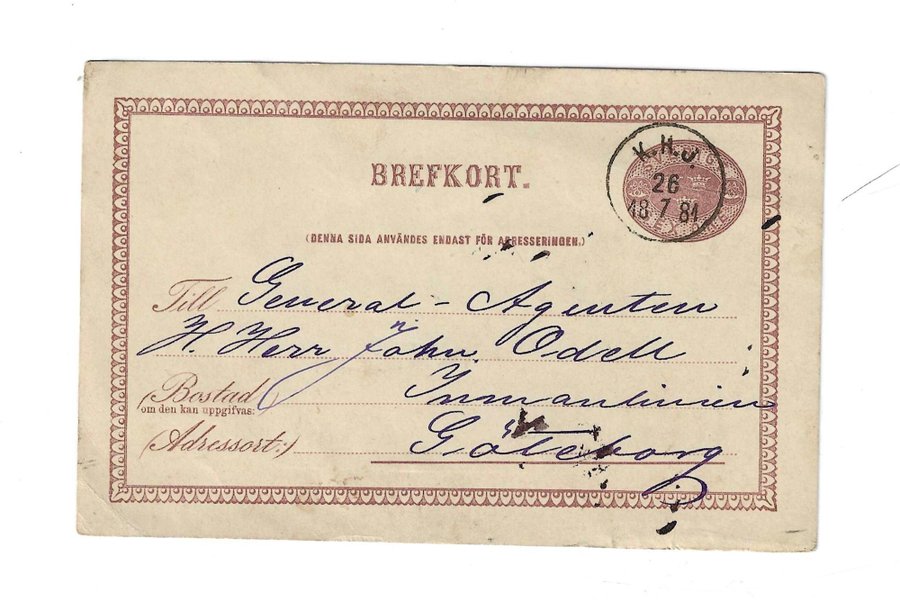 BREFKORT.
K.H.J.
26
18 7 81
(DENNA SIDA ANVÄNDES ENDAST FÖR ADRESSERINGEN.)
Till General-Agenten
H. Herr John Odell
(Bostad Inmanlinien
om den kan uppgifvas:
(Adressort:) Göteborg